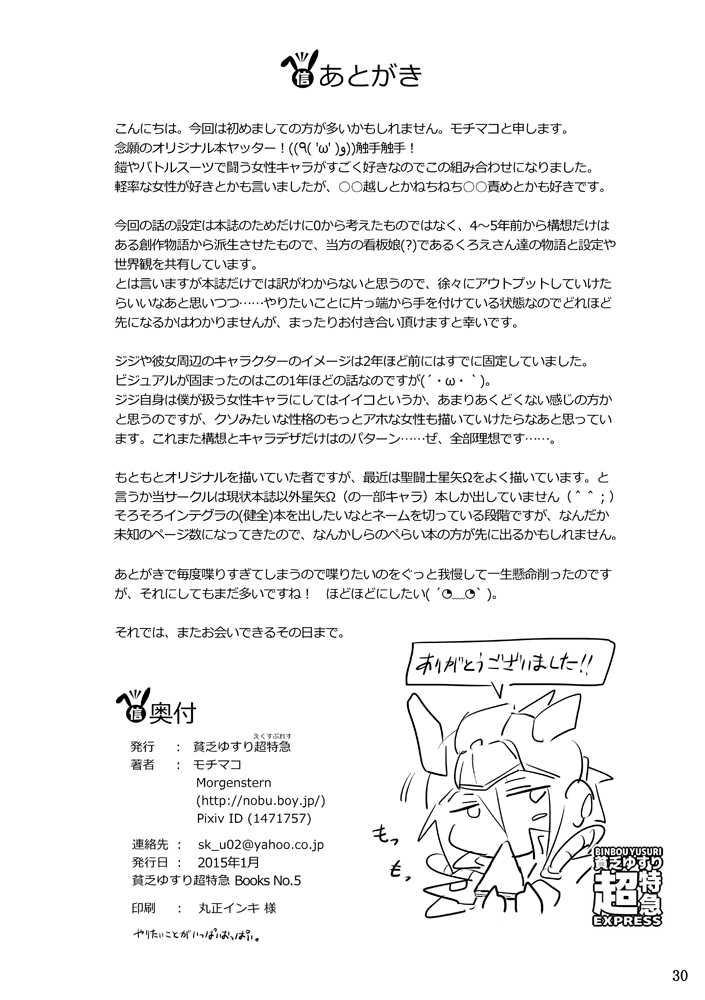 信あとがき
こんにちは。今回は初めましての方が多いかもしれません。モチマコと申します。
念願のオリジナル本ヤッター！((٩( 'ω' )و))触手触手！
鎧やバトルスーツで闘う女性キャラがすごく好きなのでこの組み合わせになりました。
軽率な女性が好きとかも言いましたが、○○越しとかねちねち○○責めとかも好きです。
今回の話の設定は本誌のためだけに0から考えたものではなく、4～5年前から構想だけは
ある創作物語から派生させたもので、当方の看板娘(?)であるくろえさん達の物語と設定や
世界観を共有しています。
とは言いますが本誌だけでは訳がわからないと思うので、徐々にアウトプットしていけた
らいいなあと思いつつ……やりたいことに片っ端から手を付けている状態なのでどれほど
先になるかはわかりませんが、まったりお付き合い頂けますと幸いです。
ジジや彼女周辺のキャラクターのイメージは2年ほど前にはすでに固定していました。
ビジュアルが固まったのはこの1年ほどの話なのですが(´・ω・｀)。
ジジ自身は僕が扱う女性キャラにしてはイイコというか、あまりあくどくない感じの方か
と思うのですが、クソみたいな性格のもっとアホな女性も描いていけたらなあと思ってい
ます。これまた構想とキャラデザだけはのパターン……ぜ、全部理想です……。
もともとオリジナルを描いていた者ですが、最近は聖闘士星矢Ωをよく描いています。と
言うか当サークルは現状本誌以外星矢Ω（の一部キャラ）本しか出していません（＾＾；）
そろそろインテグラの(健全)本を出したいなとネームを切っている段階ですが、なんだか
未知のページ数になってきたので、なんかしらのぺらい本の方が先に出るかもしれません。
あとがきで毎度喋りすぎてしまうので喋りたいのをぐっと我慢して一生懸命削ったのです
が、それにしてもまだ多いですね！　ほどほどにしたい( ´◔‿◔` )。
それでは、またお会いできるその日まで。
ありがとうございました!!
もっ
もっ
信奥付
えくすぷれす
発行　：　貧乏ゆすり超特急
著者　：　モチマコ
Morgenstern
(http://nobu.boy.jp/)
Pixiv ID (1471757)
連絡先　：　sk_u02@yahoo.co.jp
発行日　：　2015年1月
貧乏ゆすり超特急 Books No.5
印刷　：　丸正インキ 様
やりたいことがいっぱいおっぱい。
BINBOUYUSURI
貧乏ゆすり
超特急
EXPRESS
30